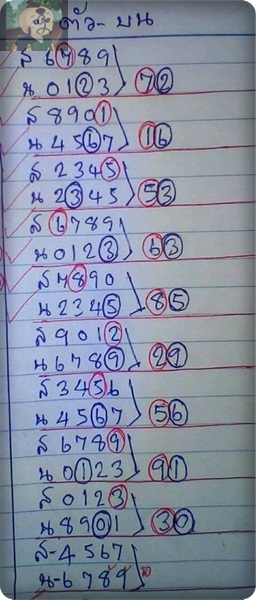 ตัว-บน
ส 6789
น 0123 72
ส 8901
น 4567 16
ส 2345
น 2345 53
ส 6789
น 0123 63
ส 7890
น 2345 85
ส 9012
น 6789 29
ส 3456
น 4567 56
ส 6789
น 0123 91
ส 0123
น 8901 30
ส-4567
น-6789